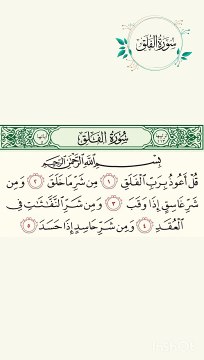 سُورَةُ الْفَلَقِ
سُورَةُ الْفَلَقِ
بِسْمِ اللَّهِ الرَّحْمَٰنِ الرَّحِيمِ
قُلْ أَعُوذُ بِرَبِّ الْفَلَقِ ١ مِن شَرِّ مَا خَلَقَ ٢ وَمِن
شَرِّ غَاسِقٍ إِذَا وَقَبَ ٣ وَمِن شَرِّ النَّفَّاثَاتِ فِي
الْعُقَدِ ٤ وَمِن شَرِّ حَاسِدٍ إِذَا حَسَدَ ٥